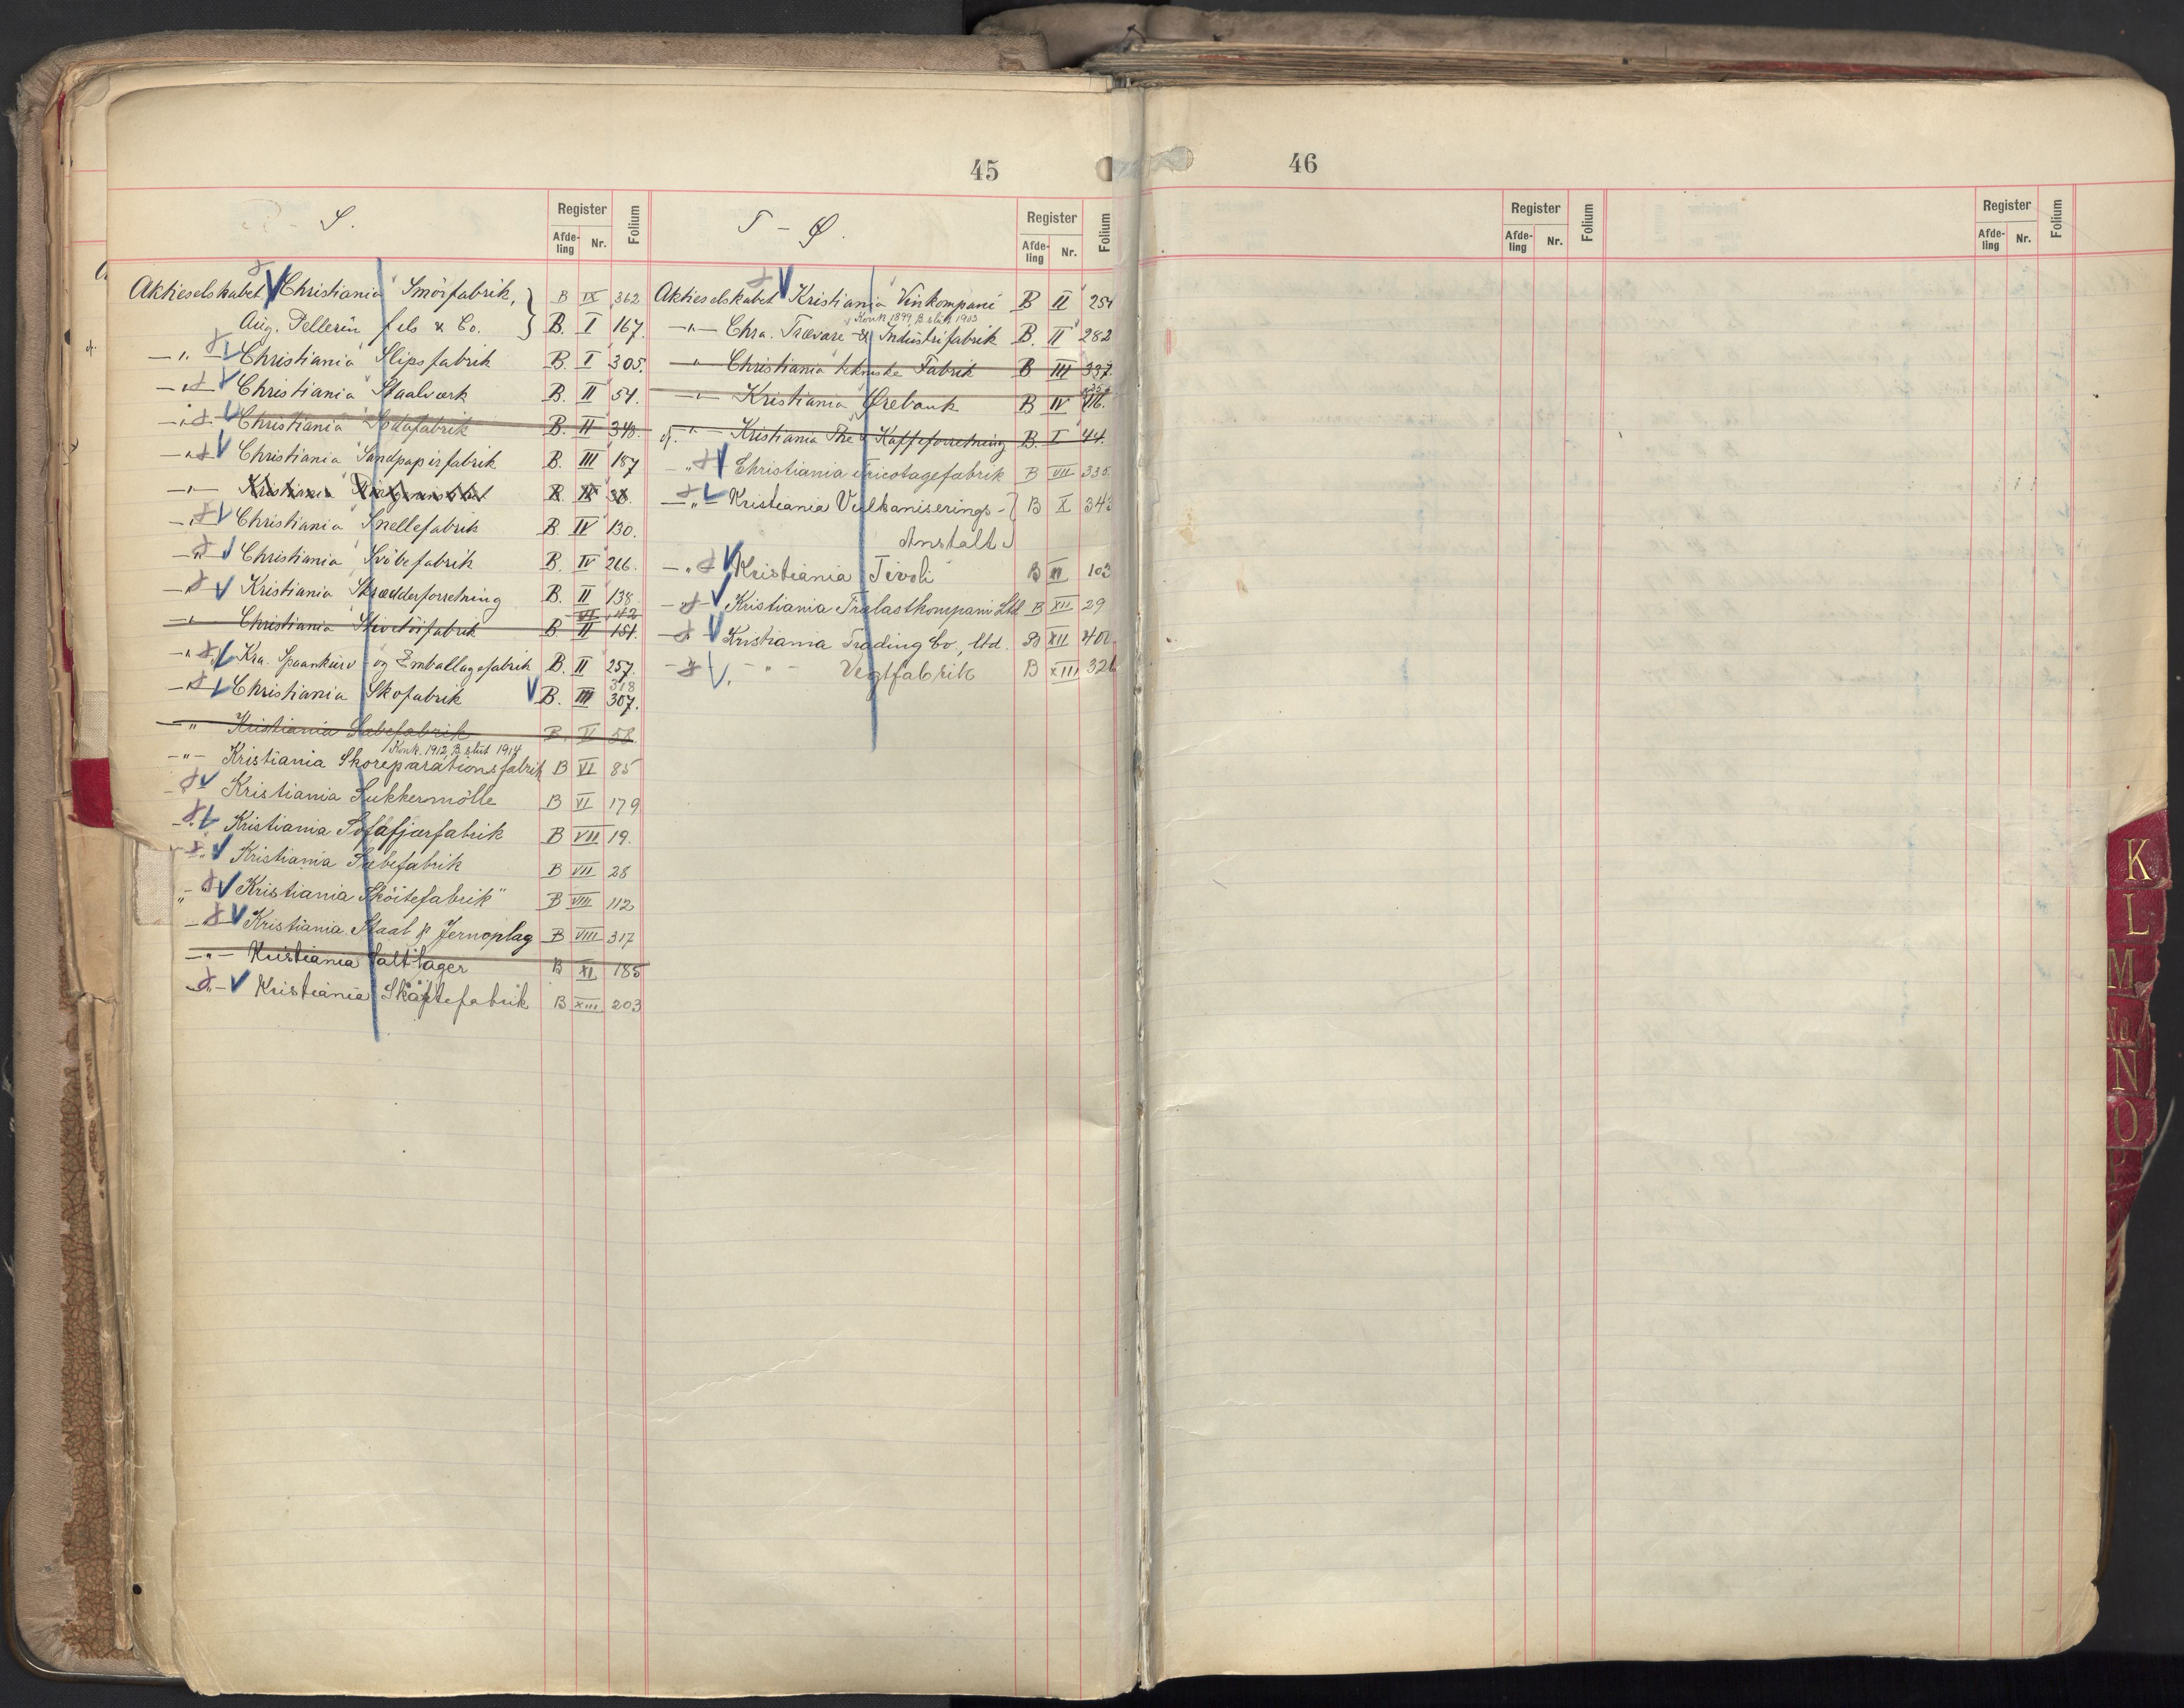 45
S.
Register
Afde-
ling
Nr.
Folium
Aktieselskabet "Christiania" Smörfabrik, B IX 362
Aug. Pellerin fils & Co. B. I 167.
—"— "Christiania" Slipsfabrik B. I 305.
—"— "Christiania" Staalverk B. II 54.
—"— "Christiania" Sodafabrik B. II 348.
—"— "Christiania" Sandpapirfabrik B. III 187
—"— Kristiania
—"— "Christiania" Snellefabrik B. IV 130.
—"— "Christiania" Svöbefabrik B. IV 266.
—"— Kristiania Skrædderforretning B. II 138.
VI 142
—"— Christiania Stivetöifabrik B II 151.
—"— Kra. Spaankurv- og Emballagefabrik B. II 257.
318
—"— Christiania Skofabrik B. III 307.
—"— Kristiania Sæbefabrik B. V 58.
Konk. 1912, B. slut 1914
—"— Kristiania Skoreparationsfabrik B VI 85
Kristiania Sukkermölle B VI 179
—"— Kristiania Sofafjærfabrik B VII 19.
—"— Kristiania Sæbefabrik B VII 28
—"— Kristiania Sköitefabrik" B VIII 112
—"— Kristiania Staal & Jernoplag B VIII 317
—"— Kristiania Saltlager B XI 185
—"— Kristiania Skaftefabrik B XIII 203
T – Ø.
Register
Afde-
ling
Nr.
Folium
Aktieselskabet "Kristiania" Vinkompani B II 254
Konk 1899, B slut 1903
—"— Chra. Trævare- & Industrifabrik B. II 282
—"— Christiania tekniske Fabrik B III 337.
—"— Kristiania Ørebank B IV 116.
cf. —"— Kristiania The & Kaffeforretning B. I 44.
—"— Christiania Tricotagefabrik B VII 335.
—"— Kristiania Vulkaniserings- B X 343
Anstalt
—"— Kristiania Tivoli B XI 103
—"— Kristiania Trælastkompani Ltd B XII 29
—"— Kristiania Trading Co, ltd. B XII 400
—"— —"— Vegtfabrik B XIII 326
46
Register
Afde-
ling
Nr.
Folium
Register
Afde-
ling
Nr.
Folium
K
L
M
N
O